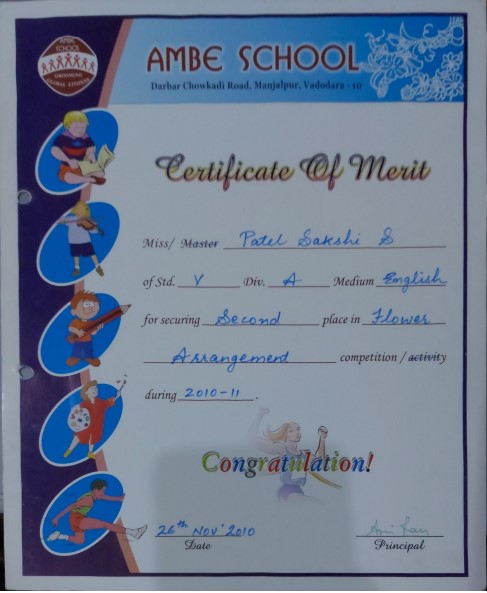 AMBE
SCHOOL
GROOMING
GLOBAL CITIZENS
AMBE SCHOOL
Darbar Chowkadi Road, Manjalpur, Vadodara - 10
Certificate Of Merit
Miss/ Master Patel Sakshi S
of Std. V Div. A Medium English
for securing Second place in Flower
Arrangement competition / activity
during 2010-11.
Congratulation!
26th Nov' 2010
Date Principal